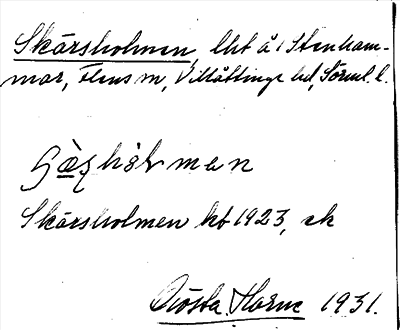 Skårsholmen, lht å i Stenham-
mar, Flens sn, Villåttinge hd, Sörml. l.
Skårsholmen kb 1923, ek
Gösta Horne 1931.